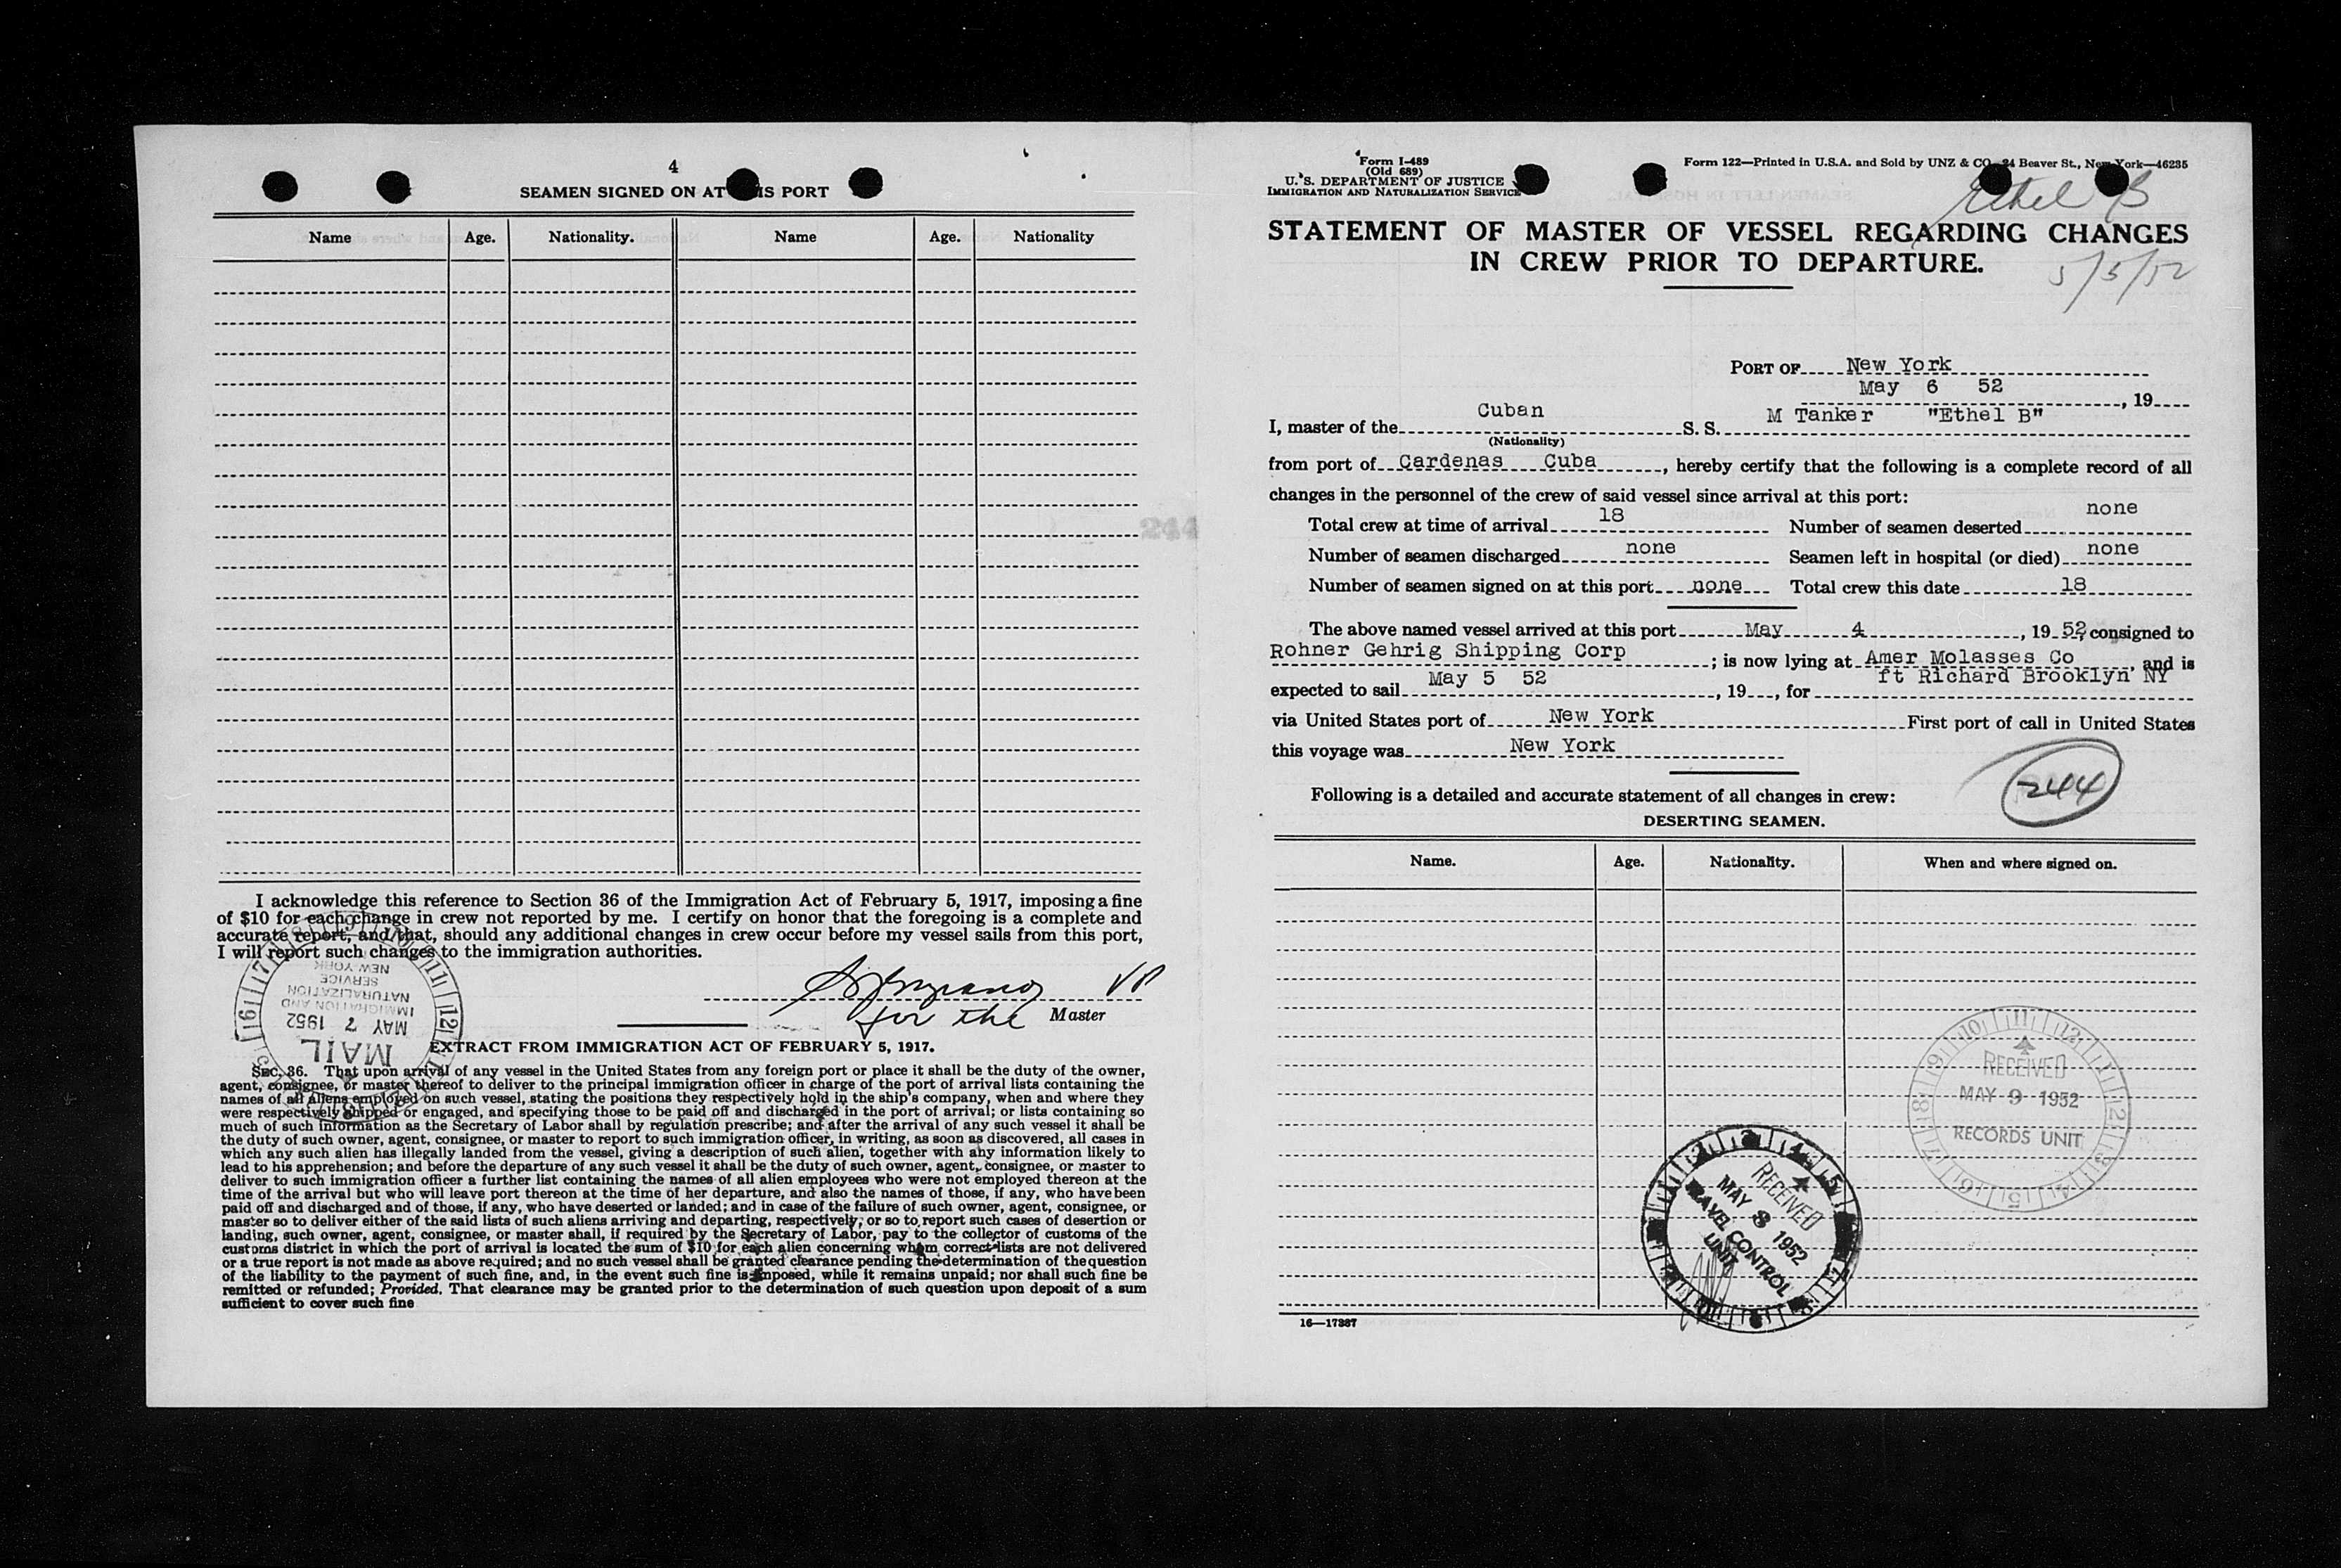 4
SEAMEN SIGNED ON AT THIS PORT
Name Age. Nationality. Name Age. Nationality
I acknowledge this reference to Section 36 of the Immigration Act of February 5, 1917, imposing a fine
of $10 for each change in crew not reported by me. I certify on honor that the foregoing is a complete and
accurate report, and that, should any additional changes in crew occur before my vessel sails from this port,
I will report such changes to the immigration authorities.
VP
for the Master
MAIL
MAY 7 1952
IMMIGRATION AND
NATURALIZATION
SERVICE
NEW YORK
EXTRACT FROM IMMIGRATION ACT OF FEBRUARY 5, 1917.
SEC. 36. That upon arrival of any vessel in the United States from any foreign port or place it shall be the duty of the owner,
agent, consignee, or master thereof to deliver to the principal immigration officer in charge of the port of arrival lists containing the
names of all aliens employed on such vessel, stating the positions they respectively hold in the ship's company, when and where they
were respectively shipped or engaged, and specifying those to be paid off and discharged in the port of arrival; or lists containing so
much of such information as the Secretary of Labor shall by regulation prescribe; and after the arrival of any such vessel it shall be
the duty of such owner, agent, consignee, or master to report to such immigration officer, in writing, as soon as discovered, all cases in
which any such alien has illegally landed from the vessel, giving a description of such alien, together with any information likely to
lead to his apprehension; and before the departure of any such vessel it shall be the duty of such owner, agent, consignee, or master to
deliver to such immigration officer a further list containing the names of all alien employees who were not employed thereon at the
time of the arrival but who will leave port thereon at the time of her departure, and also the names of those, if any, who have been
paid off and discharged and of those, if any, who have deserted or landed; and in case of the failure of such owner, agent, consignee, or
master so to deliver either of the said lists of such aliens arriving and departing, respectively, or so to report such cases of desertion or
landing, such owner, agent, consignee, or master shall, if required by the Secretary of Labor, pay to the collector of customs of the
customs district in which the port of arrival is located the sum of $10 for each alien concerning whom correct lists are not delivered
or a true report is not made as above required; and no such vessel shall be granted clearance pending the determination of the question
of the liability to the payment of such fine, and, in the event such fine is imposed, while it remains unpaid; nor shall such fine be
remitted or refunded; Provided, That clearance may be granted prior to the determination of such question upon deposit of a sum
sufficient to cover such fine
244
Form I-489
(Old 689)
U. S. DEPARTMENT OF JUSTICE
IMMIGRATION AND NATURALIZATION SERVICE
Form 122—Printed in U.S.A. and Sold by UNZ & CO. 24 Beaver St., New York—46235
Ethel B
STATEMENT OF MASTER OF VESSEL REGARDING CHANGES
IN CREW PRIOR TO DEPARTURE.
5/5/52
PORT OF New York
May 6 52, 19
I, master of the Cuban S. S. M Tanker "Ethel B"
(Nationality)
from port of Cardenas Cuba, hereby certify that the following is a complete record of all
changes in the personnel of the crew of said vessel since arrival at this port:
Total crew at time of arrival 18 Number of seamen deserted none
Number of seamen discharged none Seamen left in hospital (or died) none
Number of seamen signed on at this port none Total crew this date 18
The above named vessel arrived at this port May 4, 19 52, consigned to
Rohner Gehrig Shipping Corp; is now lying at Amer Molasses Co, and is
ft Richard Brooklyn NY
expected to sail May 5 52, 19, for
via United States port of New York First port of call in United States
this voyage was New York
244
Following is a detailed and accurate statement of all changes in crew:
DESERTING SEAMEN.
Name. Age. Nationality. When and where signed on.
RECEIVED
MAY 9 1952
RECORDS UNIT
RECEIVED
MAY 8 1952
TRAVEL CONTROL
UNIT
16—17387